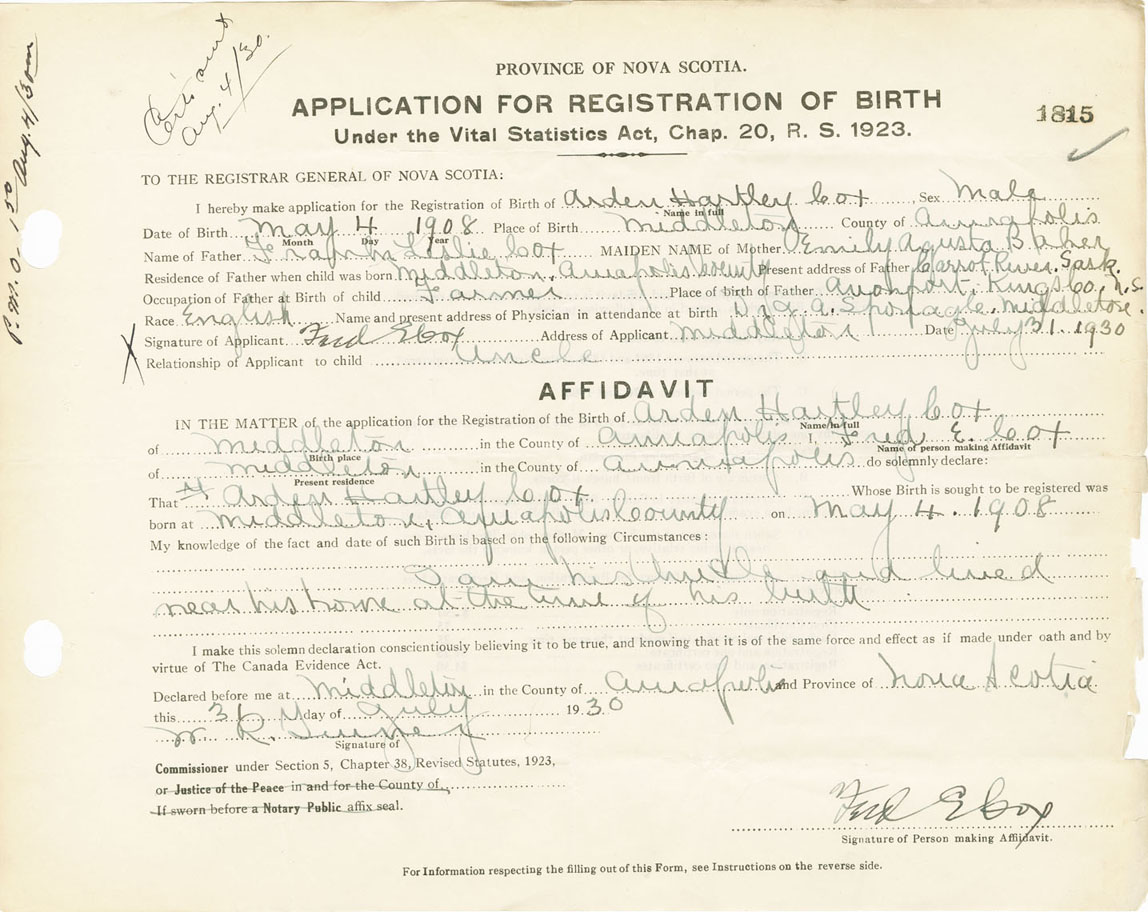 Certi sent
Aug. 4/30.
P.M.O - 1.50 Aug. 4/30
PROVINCE OF NOVA SCOTIA.
APPLICATION FOR REGISTRATION OF BIRTH
1815
Under the Vital Statistics Act, Chap. 20, R. S. 1923.
TO THE REGISTRAR GENERAL OF NOVA SCOTIA:
I hereby make application for the Registration of Birth of Arden Hartley Cox Sex Male
Name in full
Date of Birth May 4 1908 Place of Birth Middleton County of Annapolis
Month Day Year
Name of Father Leslie Cox MAIDEN NAME of Mother Emily Agusta Baker
Residence of Father when child was born Middleton, Annapolis County Present address of Father Carrot River. Sask.
Occupation of Father at Birth of child Farmer Place of birth of Father Avonport, Kings Co. N.S.
Race English Name and present address of Physician in attendance at birth A. Sponagle. Middleton.
Signature of Applicant Fred E Cox Address of Applicant Middleton Date July 31. 1930
X Relationship of Applicant to child Uncle
AFFIDAVIT
IN THE MATTER of the application for the Registration of the Birth of Arden Hartley Cox
Name in full
of Middleton in the County of Annapolis I, Fred E. Cox
Birth place Name of person making Affidavit
of Middleton in the County of Annapolis do solemnly declare:
Present residence
That Arden Hartley Cox Whose Birth is sought to be registered was
born at Middleton, Annapolis County on May 4. 1908
My knowledge of the fact and date of such Birth is based on the following Circumstances :
I am his Uncle and lived
near his home at the time of his birth
I make this solemn declaration conscientiously believing it to be true, and knowing that it is of the same force and effect as if made under oath and by
virtue of The Canada Evidence Act.
Declared before me at Middleton in the County of Annapolis and Province of Nova Scotia
this 31 day of July 1930
W. R.
Signature of
Commissioner under Section 5, Chapter 38, Revised Statutes, 1923,
or Justice of the Peace in and for the County of
If sworn before a Notary Public affix seal.
Fred E Cox
Signature of Person making Affidavit.
For Information respecting the filling out of this Form, see Instructions on the reverse side.